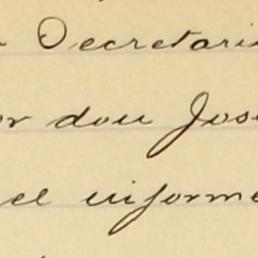 Secretari
or don José
el informe